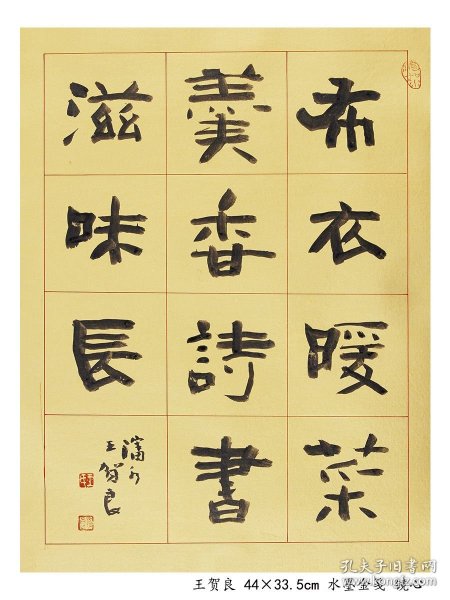 布衣暖菜
羹香詩書
滋味長
瀋水
王賀良
王贺良 44×33.5cm 水墨金笺 镜心
孔夫子旧书网